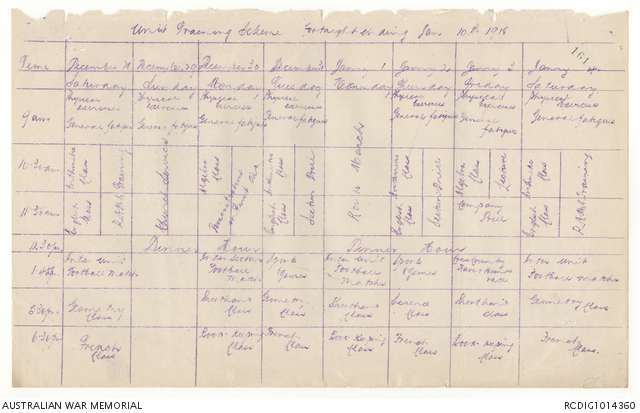 Unit Training Scheme Fortnight ending Jan 10th 1918
161
Time December December December December January 1 January 2 January January
Saturday Sunday Monday Tuesday Wednesday Thursday Friday Saturday
9 am
Physical exercises
General fatigue
Physical exercises
General fatigue
Physical exercises
General fatigue
Physical exercises
General fatigue
Physical exercises
General fatigue
Physical exercises
General fatigue
Physical exercises
General fatigue
10.30 am
11.30 am
Arithmetic Class
English Class
Church Service
Algebra Class
Arithmetic Class
English Class
Section Drill
Route March
Arithmetic Class
English Class
Section Drill
Algebra Class
Company Drill
Lecture
Arithmetic Class
English Class
12.30 pm
Dinner Hour Dinner Hour
Inter Unit
Football Match
Football Match
Games
Inter Unit
Football Match
Games
race
Inter Unit
Football Match
5.30 pm
Geometry Class
Shorthand Class
Geometry Class
Shorthand Class
Class
Shorthand Class
Geometry Class
6.30 pm
French Class
Book-Keeping Class
French Class
Book-Keeping Class
French Class
Book-Keeping Class
French Class.
AUSTRALIAN WAR MEMORIAL
RCDIG1014360